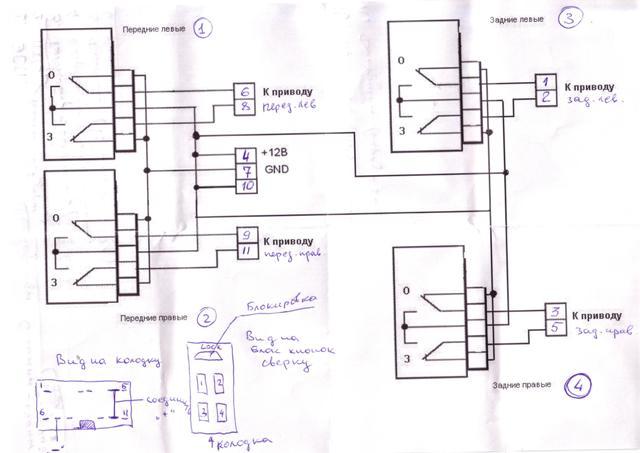 Передние левые 1
0
3
6
8
К приводу
перед. лев
Задние левые 3
0
3
1
2
К приводу
зад. лев.
4 +12В
7 GND
10
0
3
9
11
К приводу
перед. прав.
Передние правые 2
0
3
3
5
К приводу
зад. прав.
Задние правые 4
Вид на колодку
1 5
6 11
соединить
"+"
"-"
Блокировка
Lock
1 2
3 4
колодка
Вид на
блок кнопок
сверху